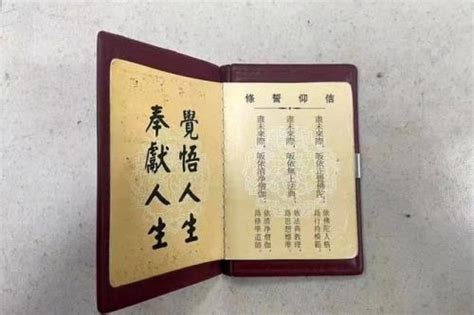 覺悟人生
奉獻人生
信仰誓條
盡未來際，皈依正覺佛陀，
依佛陀人格，
為行持模範。
盡未來際，皈依無上法典，
依法典教理，
為思想標準。
盡未來際，皈依清淨僧伽，
依清淨僧伽，
為修學導師。